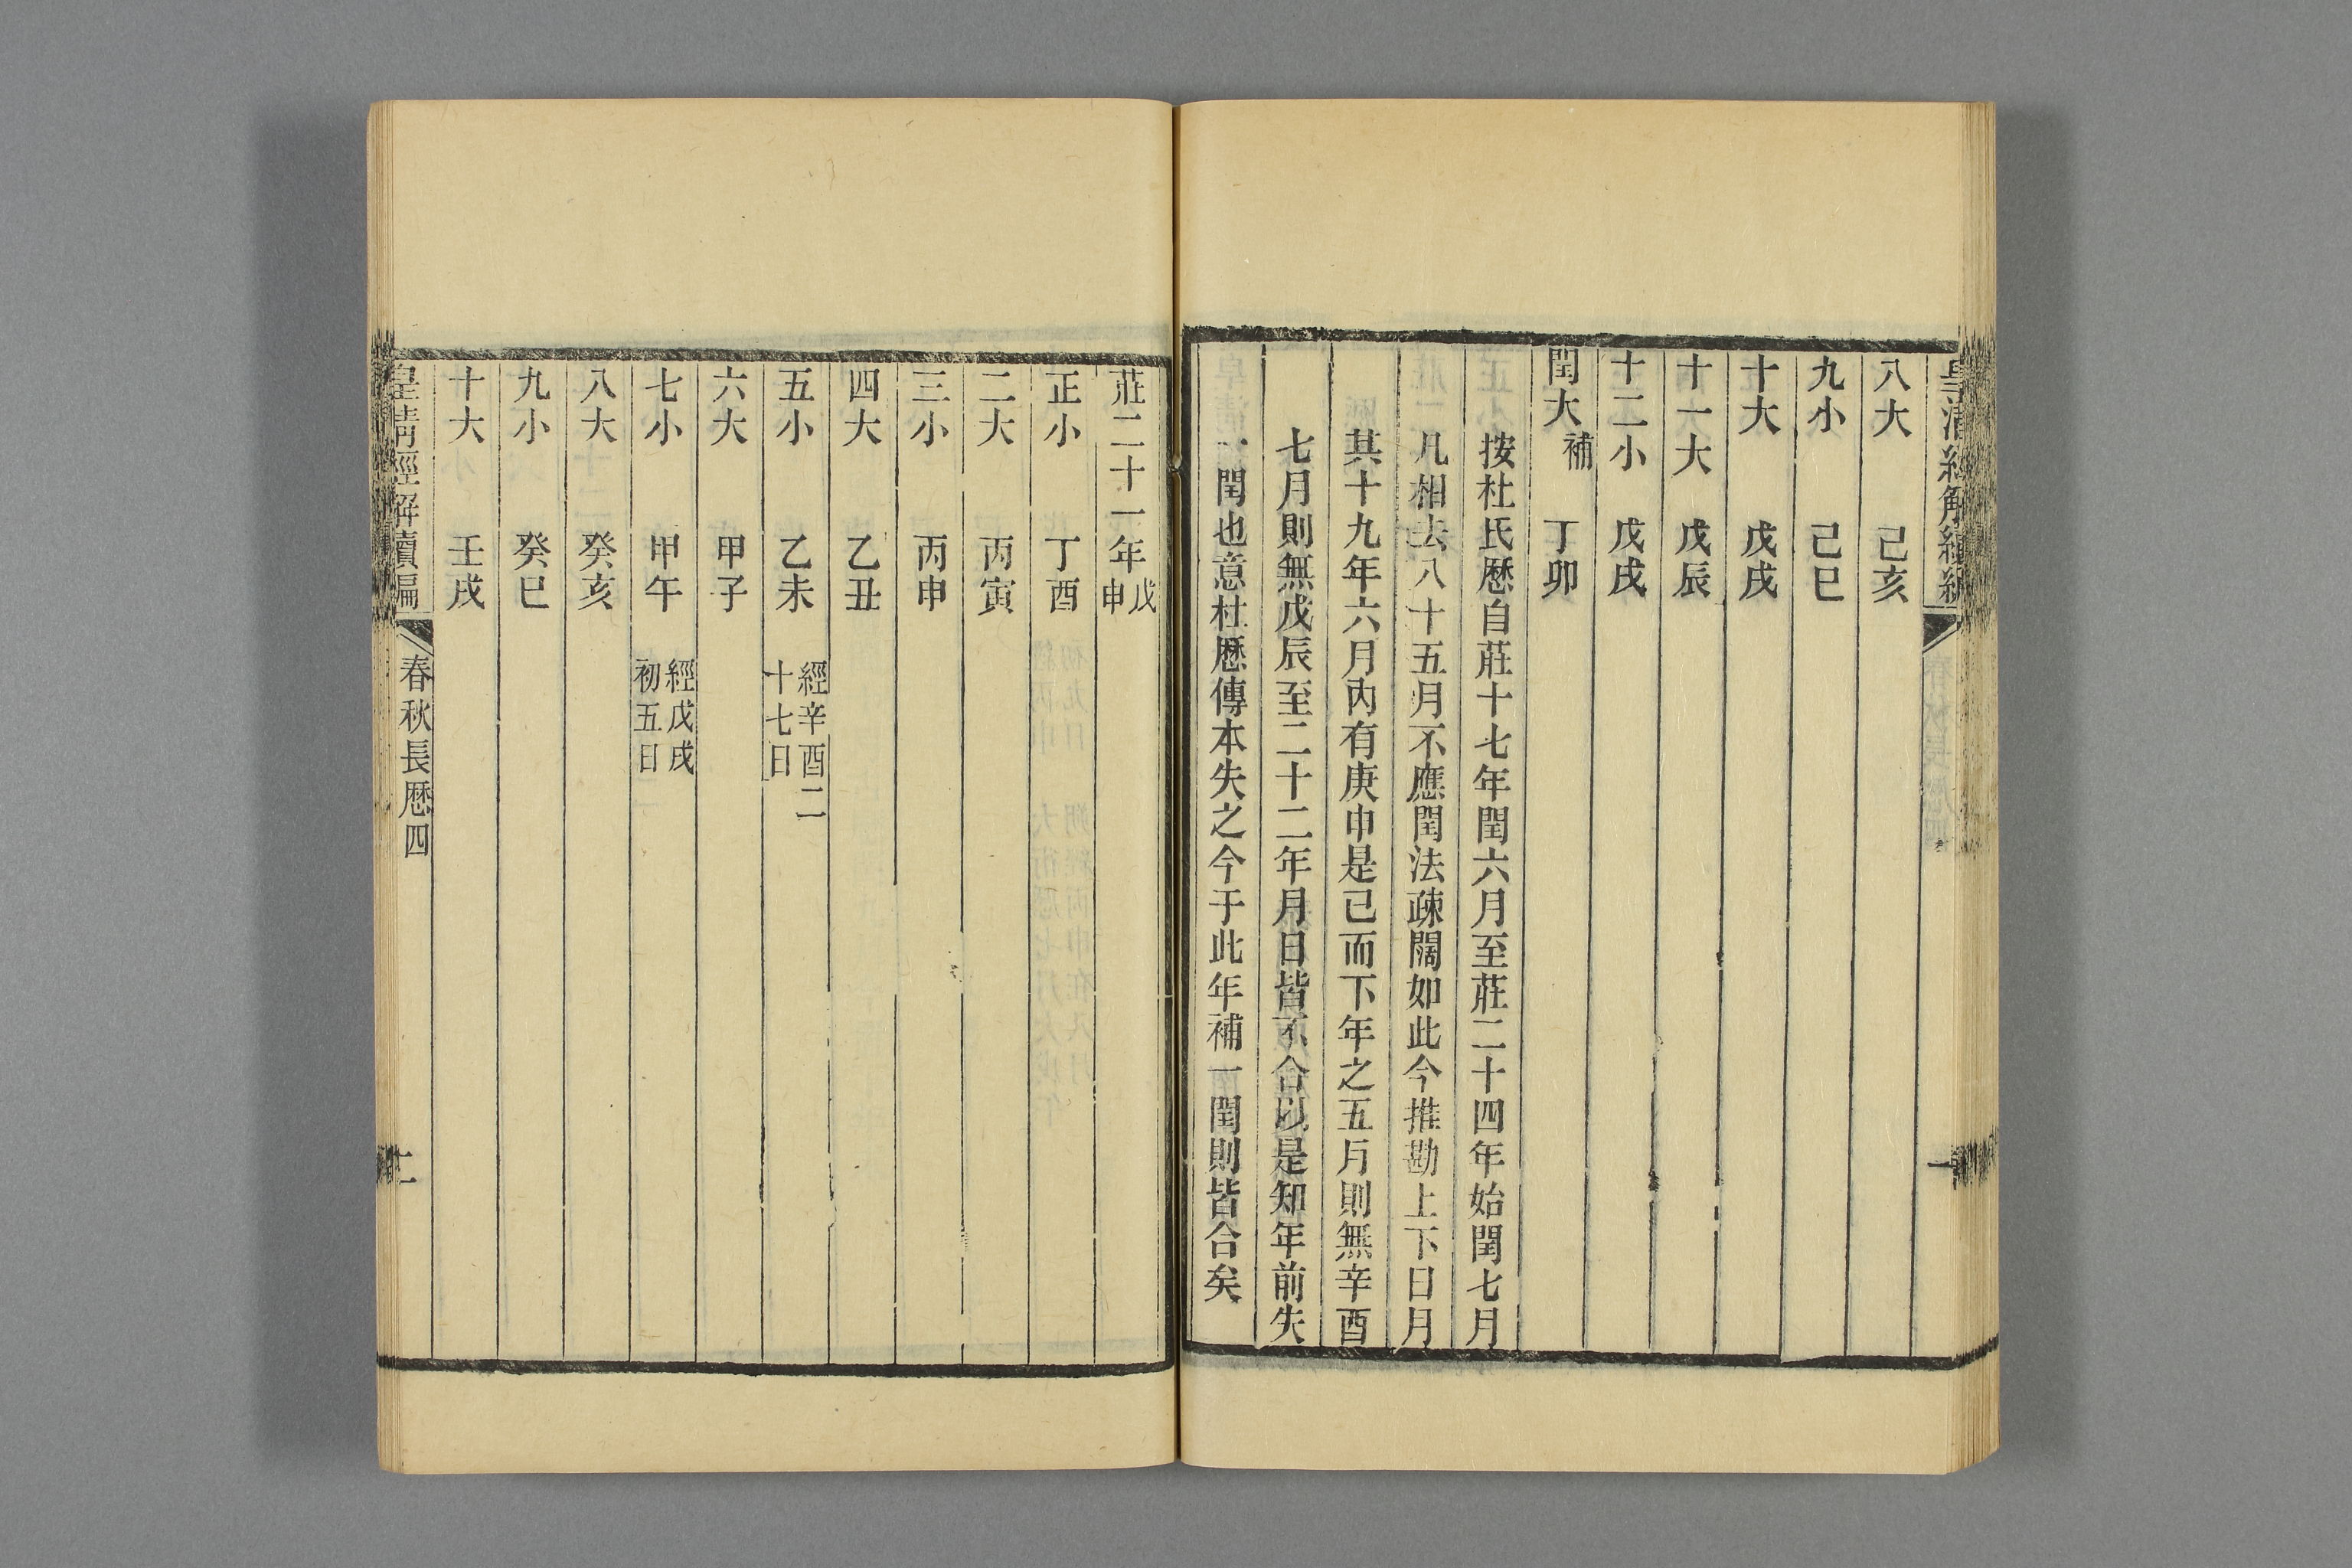 皇清經解續編
八大 己亥
九小 己巳
十大 戊戌
十一大 戊辰
十二小 戊戌
閏大補 丁卯
按杜氏厯自莊十七年閏六月至莊二十四年始閏七月
凡相去八十五月不應閏法疎闊如此今推勘上下日月
其十九年六月內有庚申是已而下年之五月則無辛酉
七月則無戊辰至二十二年月日皆不合以是知年前失
一閏也意杜厯傳本失之今于此年補一閏則皆合矣
莊二十一年戊申
正小 丁酉
二大 丙寅
三小 丙申
四大 乙丑
五小 乙未 經辛酉二十七日
六大 甲子
七小 甲午 經戊戌初五日
八大 癸亥
九小 癸巳
十大 壬戌
皇清經解續編 春秋長厯四